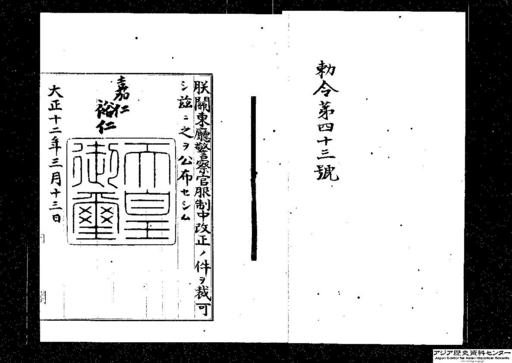 勅令第四十三號
朕關東廳警察官服制中改正ノ件ヲ裁可
シ茲ニ之ヲ公布セシム
嘉仁
裕仁
天皇
御璽
大正十二年三月十三日
アジア歴史資料センター
Japan Center for Asian Historical Records